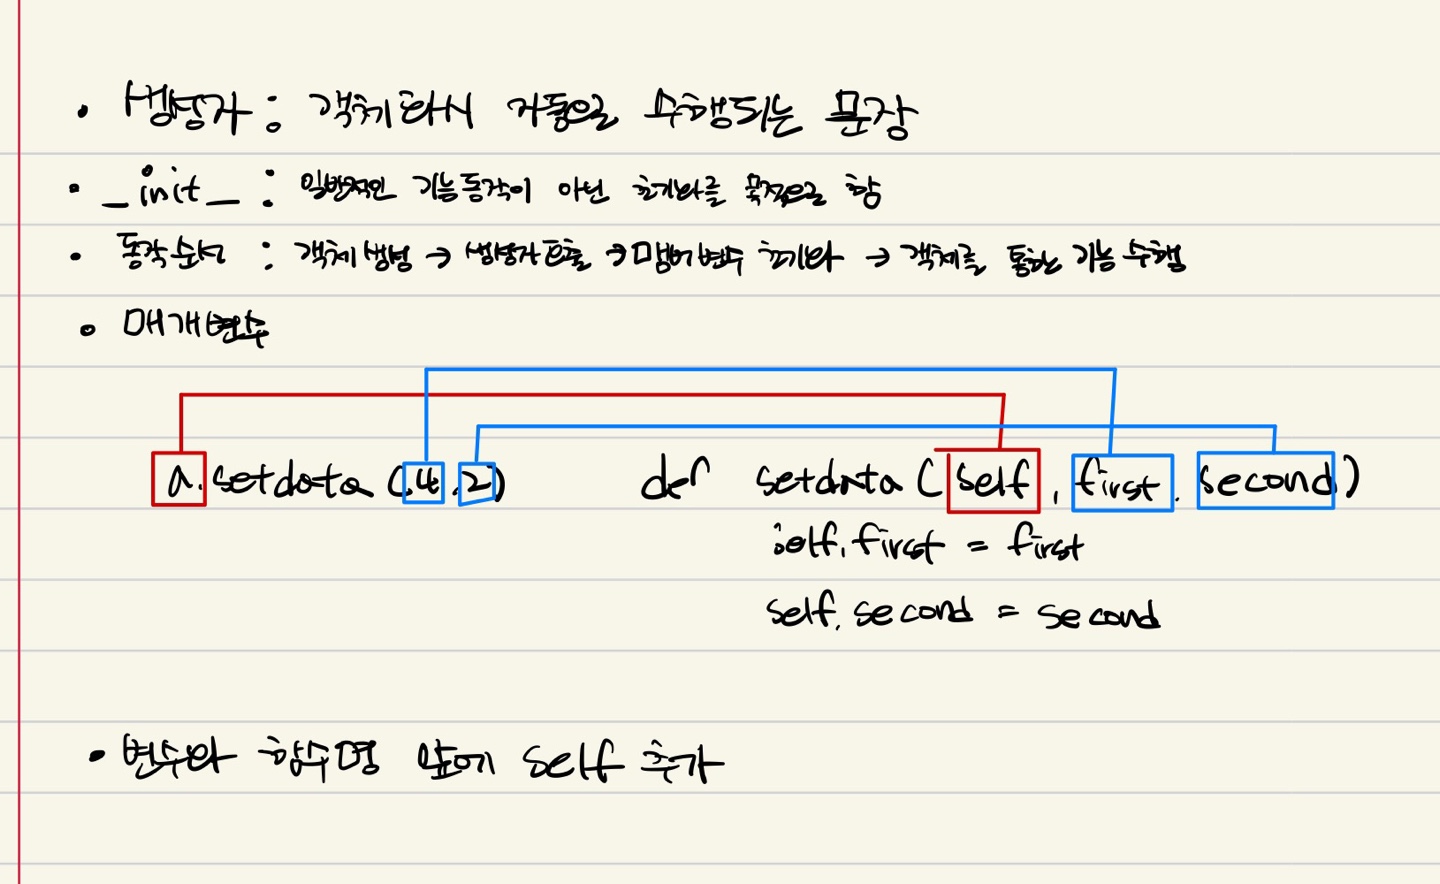 • 생성자 : 객체화시 자동으로 수행되는 문장
• _init_ : 일반적인 기능동작이 아닌 초기화를 목적으로 함
• 동작순서 : 객체생성 → 생성자 호출 → 멤버변수 초기화 → 객체를 통한 기능 수행
• 매개변수
a.setdata (4,2) def setdata (self, first, second)
self.first = first
self.second = second
• 변수와 함수명 앞에 self 추가